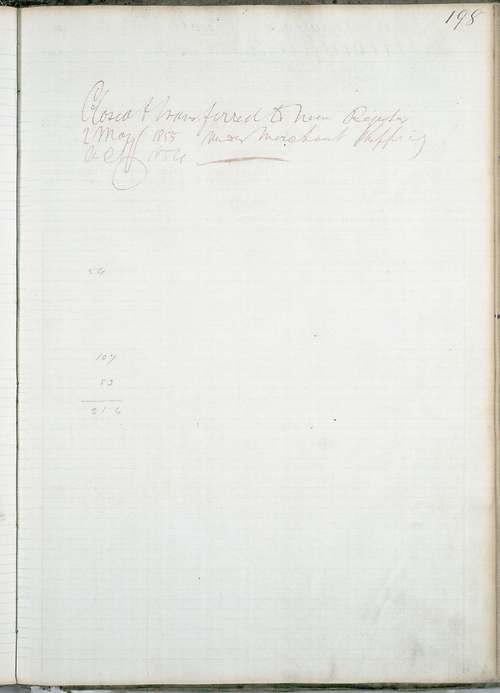 198
Closed & transferred to new Register
2 May 1855 under Merchant Shipping
Act 1854
54
107
53